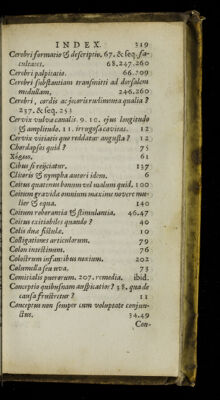 INDEX. 319
Cerebri formatio & descriptio. 67. & seq. fa-
cultates. 68.247.260
Cerebri palpitatio. 66.209
Cerebri substantiam transmitti ad dorsalem
medullam. 246.260
Cerebri, cordis ac jecoris rudimenta qualia?
237. & seq. 251
Cervix vulva canalis. 9. 10. ejus longitudo
& amplitudo. 11. irrugosa cavitas. 12
Cervix vitiatis quo reddatur angusta? 12
Chordapsus quid? 75
61
Cibus si rejiciatur. 137
Clitoris & nympha autori idem. 6
Coitus quatenus bonum vel malum quid. 100
Coitum gravida omnium maxime novere mu-
lier & equa. 140
Coitum roborantia & stimulantia. 46.47
Coitus exitiabilis quando? 40
Colis dua fistula. 10
Colligationes articulorum. 79
Colon intestinum. 76
Colostrum infantibus noxium. 202
Columella seu uva. 73
Comitialis puerorum. 207. remedia. ibid.
Conceptio quibusnam auspicatior? 38. qua de
causa frustretur? 11
Conceptus non semper cum voluptate conjun-
ctus. 34.49
Con-